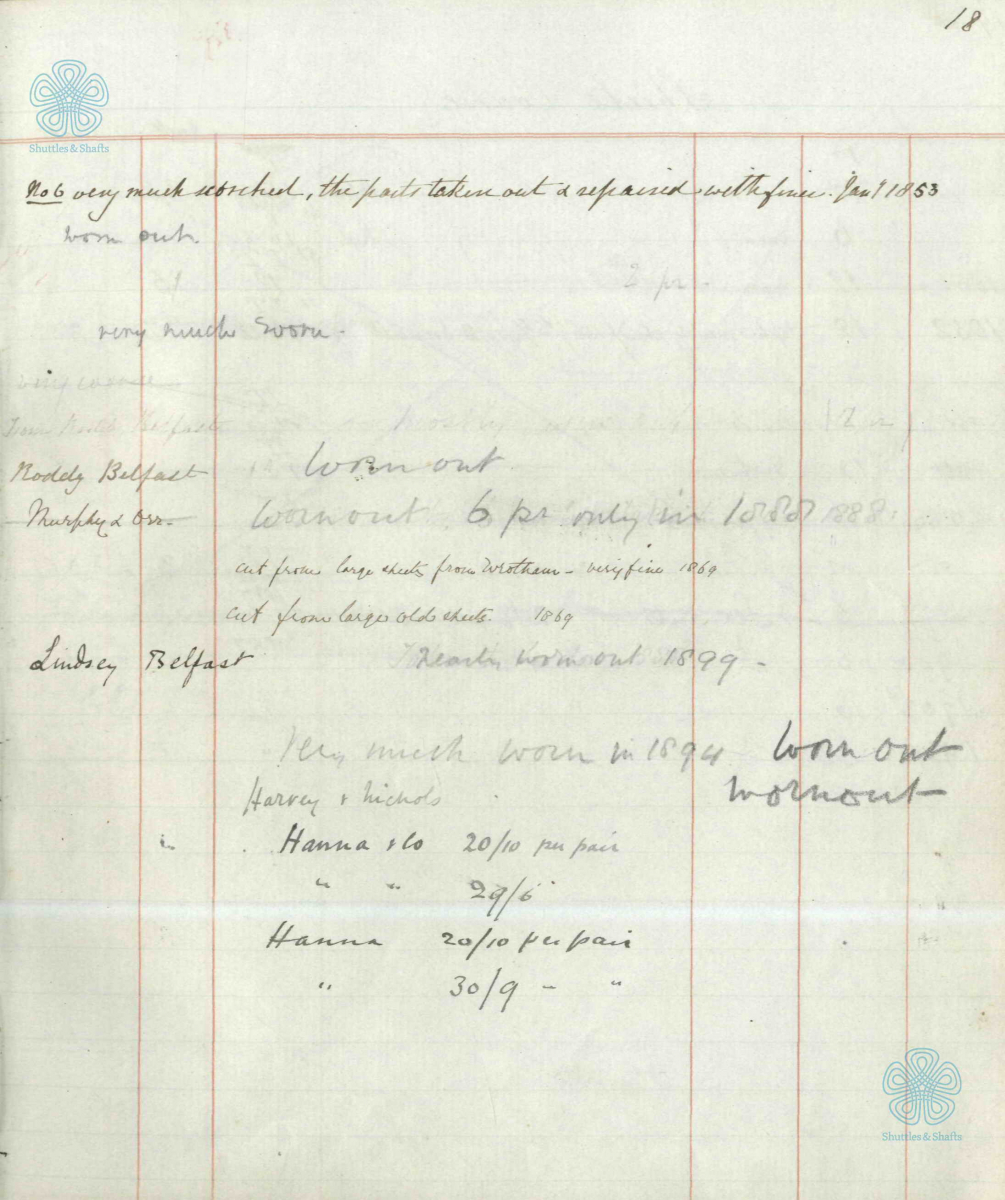 18
Shuttles & Shafts
No 6 very much scorched, the parts taken out & repaired with finer. Jany 1853
worn out.
2 pr
very much worn.
very worn
12
Roddy Belfast Worn out
Murphy & Orr. Worn out 6 pr only in 1888 1888
cut from large sheets from Wrotham - very fine 1869
cut from large old sheets. 1869
Lindsey Belfast Nearly worn out 1899 -
Very much worn in 1894 Worn out
Harvey & Nichols wornout
" Hanna & Co 20/10 per pair
" " 29/6
Hanna 20/10 per pair
" 30/9 - "
Shuttles & Shafts